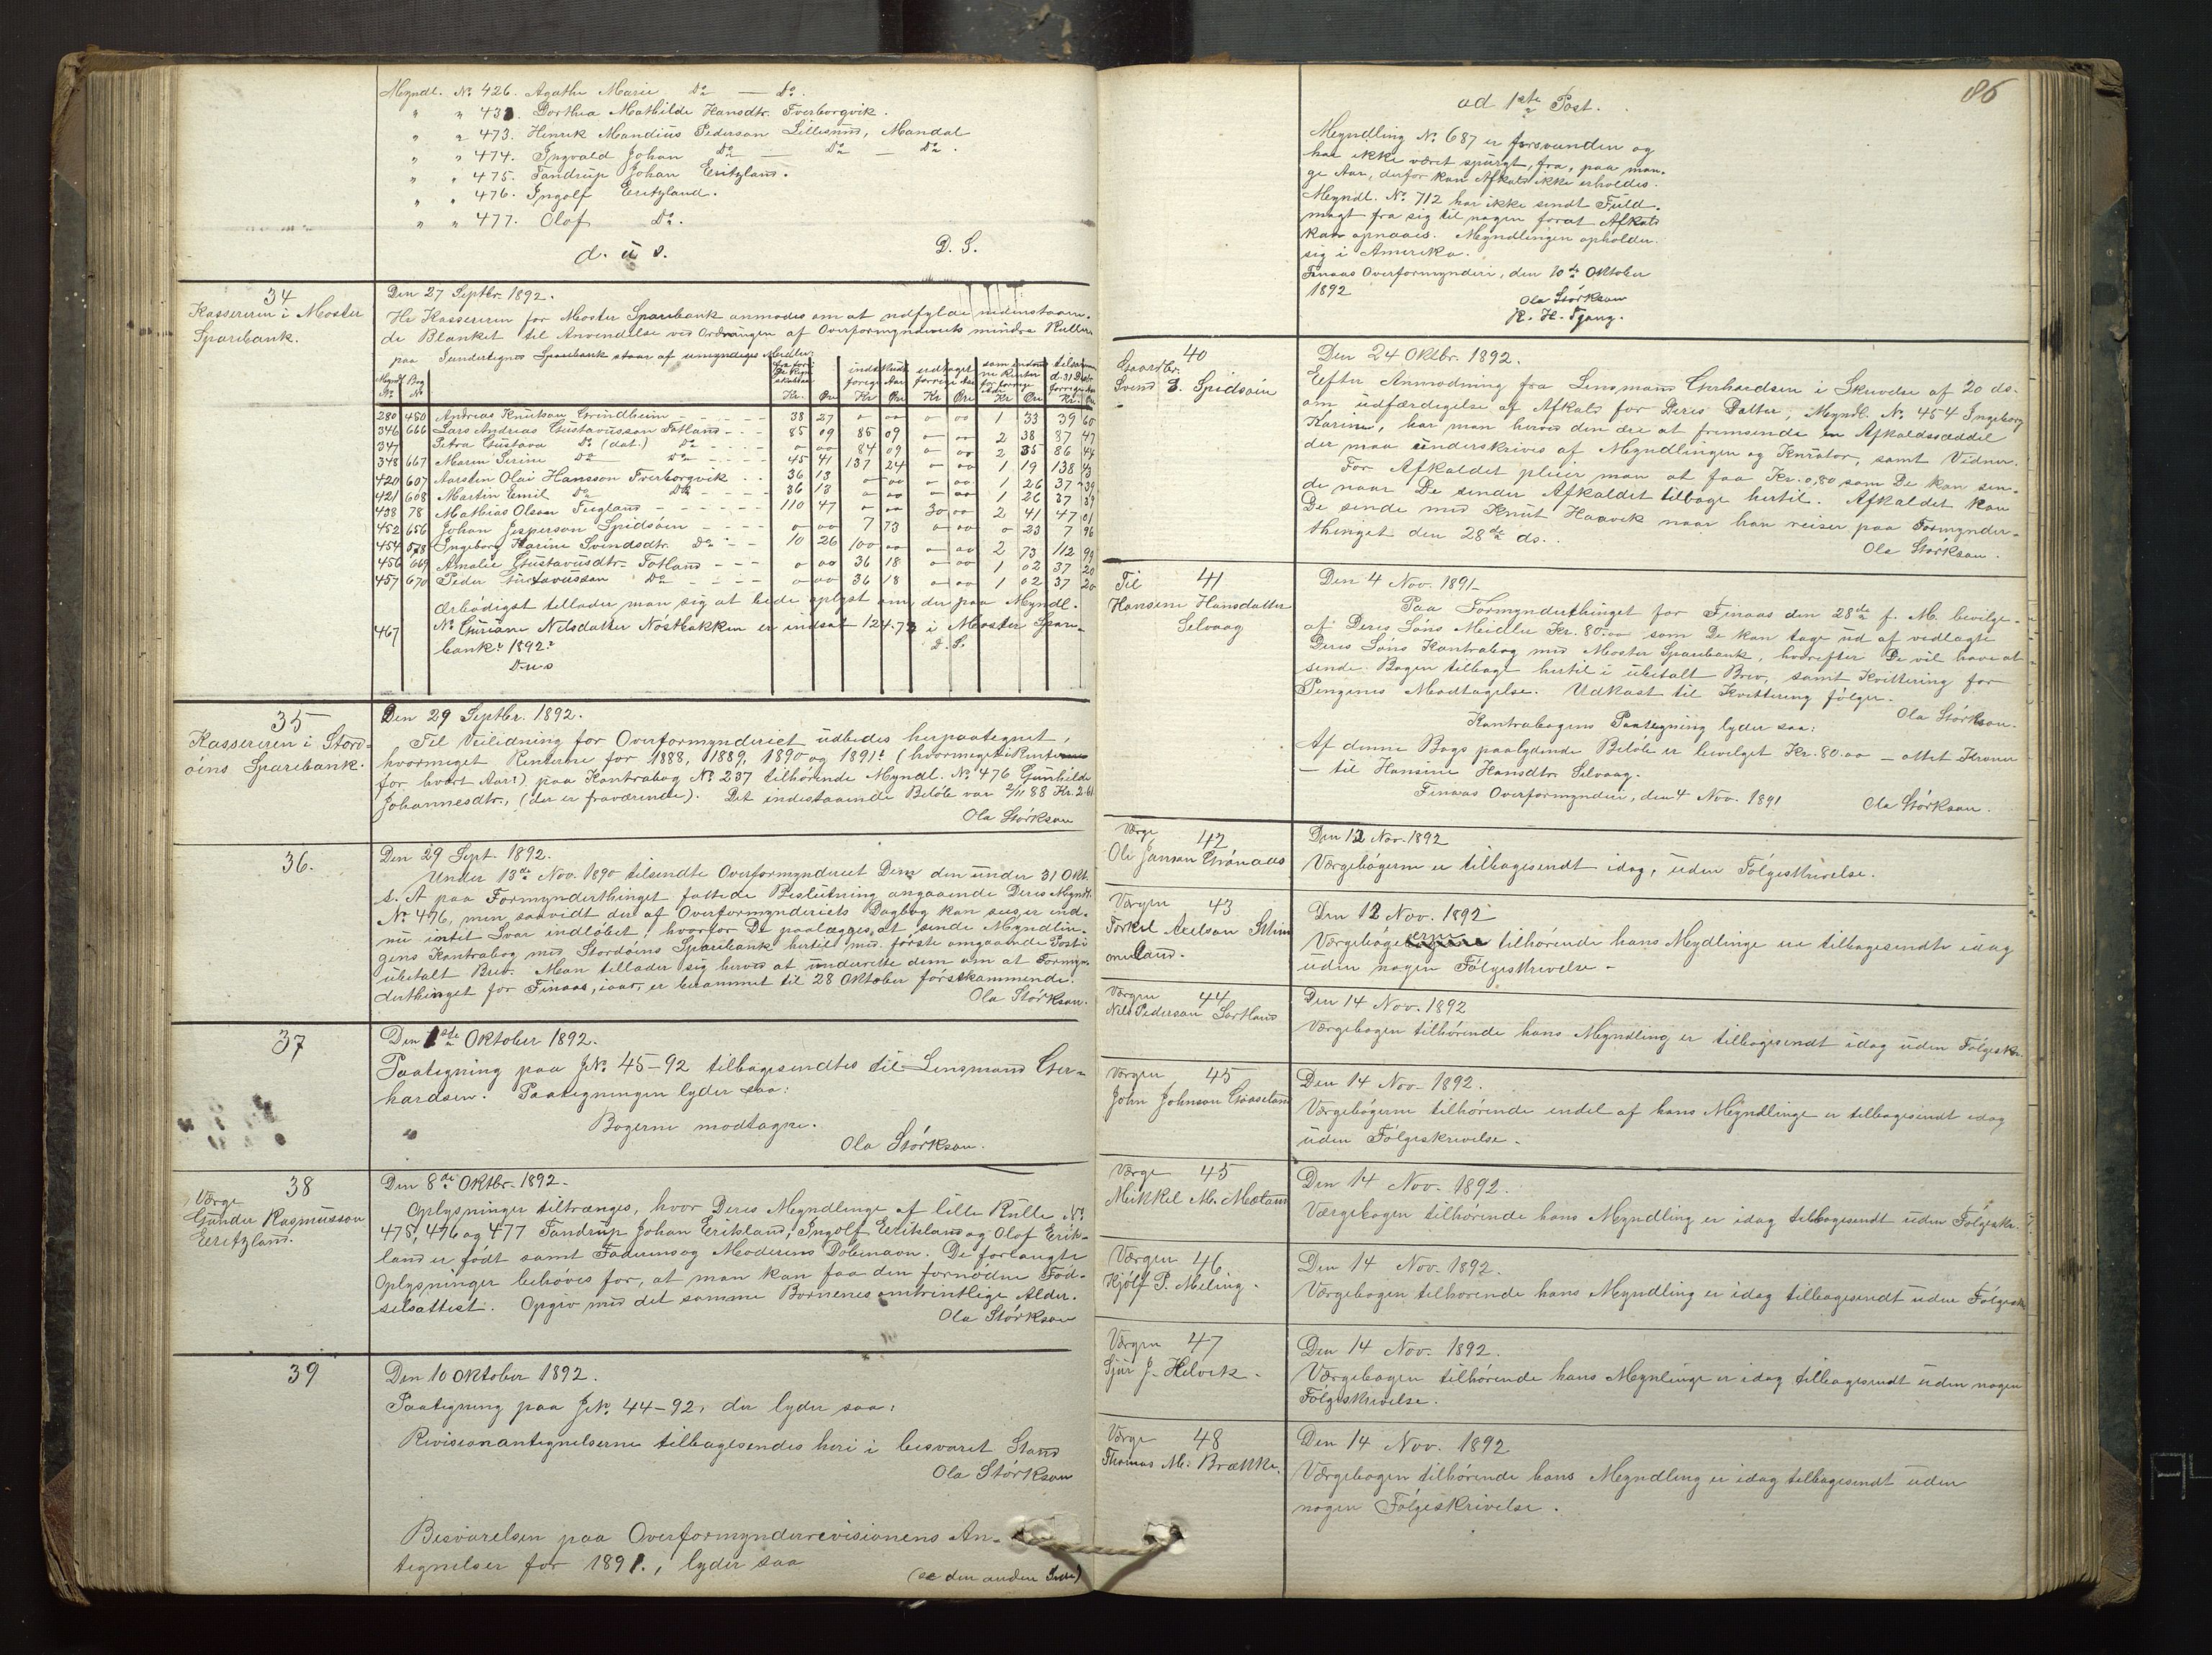 Myndl. No 426. Agathe Marie Do — Do.
" " 433. Dorthea Mathilde Hansdtr. Tverborgvik.
" " 473. Hinrik Mandius Pederson Lillesund, Mandal
" " 474. Ingvald Johan Do — Do — Do.
" " 475. Tandrup Johan Eritzland.
" " 476. Ingolf Eritzland.
" " 477. Olof Do.
d. u s. D. S.
34
Kassereren i Moster
Sparebank.
Den 27 Septbr. 1892.
Hr Kassereren for Moster Sparebank anmodes om at udfylde nedenstaaen-
de Blanket til Anvendelse ved Ordningen af Overformynderiets mindre Rulle.
paa Sundertegnes Sparebank staar af umyndiges Midler
Myndl. No Bog No
indskudt forrige Aar udtaget forrige Aar
Kr. Øre Kr Øre Kr Øre Kr Øre Kr.
280 450 Andreas Knutson Grindheim - - - 38 27 " oo " oo 1 33 39 60
346 666 Lars Andreas Gustavusson Fotland - - - 85 09 85 09 " oo 2 38 87 47
347 Petra Gustava Do (dat.) Do - - - " oo 84 09 " oo 2 35 86 44
348 667 Maren Serine Do Do - - - 45 41 137 24 " oo 1 19 138 43
420 607 Aarsten Olai Hansson Tverborgvik - - 36 13 " oo " oo 1 26 37 39
421 608 Martin Emil Do Do - - - 36 13 " oo " oo 1 26 37 39
438 78 Mathias Olson Fugland - - - 110 47 " oo 30 oo 2 41 47 01
452 656 Johan Jesperson Spidsøen - - - o oo 7 73 " oo o 23 7 96
454 578 Ingeborg Karine Svendsdtr. Do - - 10 26 100 oo " oo 2 73 112 99
456 669 Amalie Gustavusdtr. Fotland - - - o oo 36 18 " oo 1 02 37 20
457 670 Peder Gustavusson Do - - - o oo 36 18 " oo 1 02 37 20
Ærbødigst tillader man sig at bede oplyst om der paa Myndl.
467 No Guriane Nilsdatter Nøstbakken er indsat 124.73 i Moster Spare-
bank i 1892?
D. u. s D. S.
35
Kassereren i Stord-
øens Sparebank.
Den 29 Septbr. 1892.
Til Veiledning for Overformynderiet udbedes herpaategnet,
hvormeget Renterne for 1888, 1889, 1890 og 1891? (hvormeget i Rente
for hvert Aar?) paa Kontrabog No 237 tilhørende Myndl. No 476 Gunhilde
Johannesdtr., (der er fraværende). Det indestaaende Beløb var 2/11 88 Kr. 2.61
Ola Størkson
36.
Den 29 Sept. 1892.
Under 13de Nov. 1890 tilsendte Overformynderiet Dem den under 31 Okt.
s. A paa Formynderthinget fattede Beslutning angaaende Deres Myndl.
No 476, men saavidt der af Overformynderiets Dagbog kan sees er end-
nu intet Svar indløbet, hvorfor De paalægges at sende Myndlin-
gens Kontrabog med Stordøens Sparebank hertil med første omgaaende Post i
ubetalt Brev. Man tillader sig herved at underrette dem om at Formyn-
derthinget for Finaas, iaar, er berammet til 28 Oktober førstkommende.
Ola Størkson.
37
Den 1ste Oktober 1892.
Paategning paa J No. 45-92 tilbagesendtes til Lensmand Ger-
hardsen. Paategningen lyder saa:
Bogerne modtagne.
Ola Størkson.
38
Værge
Gunder Rasmusson
Eeritzland.
Den 8de Oktbr. 1892.
Oplysninger tiltrænges, hvor Deres Myndlinge af lille Rulle No
475, 476 og 477 Tandrup Johan Eriksland, Ingolf Eeriksland og Olof Erik-
land er født samt Faderens og Moderens Døbenavn. De forlangte
Oplysninger behøves for, at man kan faa den fornødne Fød-
selsattest. Opgiv med det samme Børnenes omtrentlige Alder.
Ola Størkson
39
Den 10 Oktober 1892.
Paategning paa J No. 44-92, der lyder saa:
Revisionantegnelserne tilbagesendes heri i besvaret Stand
Ola Størkson
Besvarelsen paa Overformynderrevisionens An-
tegnelser for 1891., lyder saa
(se den anden Side)
86
ad 1ste Post.
Myndling No 687 er forsvunden og
har ikke været spurgt, fra, paa man-
ge Aar, derfor kan Afkald ikke erholdes.
Myndl. No 712 har ikke sendt Fuld-
magt fra sig til nogen forat Afkald
kan opnaaes. Myndlingen opholder
sig i Amerika.
Finaas Overformynderi, den 10de Oktober
1892
Ola Størkson
K. H. Tgang.
40
Gaardbr.
Svend S. Spidsøin
Den 24 Oktbr. 1892.
Efter Anmodning fra Lensmand Gerhardsen i Skrivelse af 20 ds.
om udfærdigelse af Afkald for Deres Datter, Myndl. No 454 Ingeborg
Karine, har man herved den ære at fremsende en Afkaldsseddel
der maa underskrives af Myndlingen og Kurator, samt Vidner.
For Afkaldet pleier man at faa Kr. 0,80 som De kan sen-
de naar De sender Afkaldet tilbage hertil. Afkaldet kan
De sende med Knut Haavik naar han reiser paa Formynder-
thinget den 28de ds.
Ola Størkson.
Til 41
Hansine Hansdatter
Selvaag
Den 4 Nov. 1891-
Paa Formynderthinget for Finaas den 28de f. M. bevilge-
af Deres Søns Midler Kr. 80.oo som De kan tage ud af vedlagte
Deres Søns Kontrabog med Moster Sparebank, hvorefter De vil have at
sende Bogen tilbage hertil i ubetalt Brev, samt Kvittering for
Pengenes Modtagelse. Udkast til Kvittering følger.
Ola Størkson.
Kontrabogens Paategning lyder saa:
Af denne Bogs paalydende Beløb er bevilget Kr. 80.oo — ottet Kroner
— til Hansine Hansdtr. Selvaag.
Finaas Overformynderi, den 4 Nov. 1891 Ola Størkson.
Værge 42
Ole Janson Grønaas
Den 12 Nov. 1892
Værgebøgerne er tilbagesendt idag, uden Følgeskrivelse.
Værgen 43
Torkel Axelson
Den 12 Nov. 1892
Værgebøgerne tilhørende hans Mydlinge ere tilbagesendte idag
uden nogen Følgeskrivelse -
Værgen 44
Nils Pederson Sortland
Den 14 Nov. 1892
Værgebogen tilhørende hans Myndling er tilbagesendt idag uden Følgeskr.
Værgen 45
John Johnson Gaaseland
Den 14 Nov. 1892.
Værgebøgerne tilhørende endel af hans Myndlinge er tilbagesendt idag
uden Følgeskrivelse.
Værge 45
Mikkel M. Mæland
Den 14 Nov. 1892.
Værgebogen tilhørende hans Myndling er idag tilbagesendt uden Følgeskr.
Værgen 46
Kjølf P. Meling.
Den 14 Nov. 1892.
Værgebogen tilhørende hans Myndling er idag tilbagesendt uden Følgeskr.
Værgen 47
Sjur J. Helvik.
Den 14 Nov. 1892.
Værgebogen tilhørende hans Mynlinge er idag tilbagesendt uden nogen
Følgeskrivelse.
Værge 48
Thomas M. Brække.
Den 14 Nov. 1892
Værgebogen tilhørende hans Myndling er idag tilbagesendt uden
nogen Følgeskrivelse.